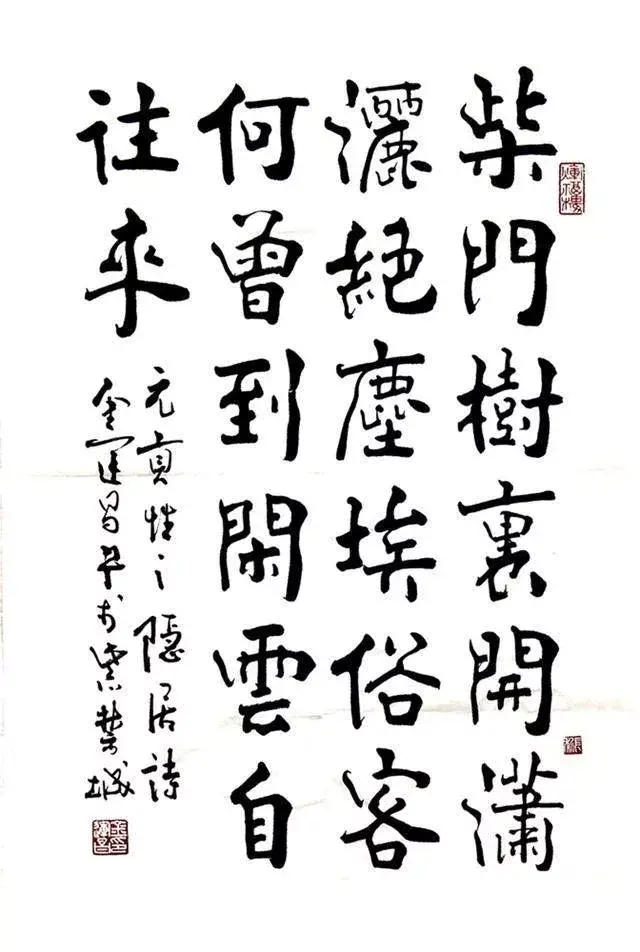 柴門樹裏開瀟
灑絶塵埃俗客
何曾到閑雲自
往來
元貢性之隱居詩
金運昌書於紫禁城